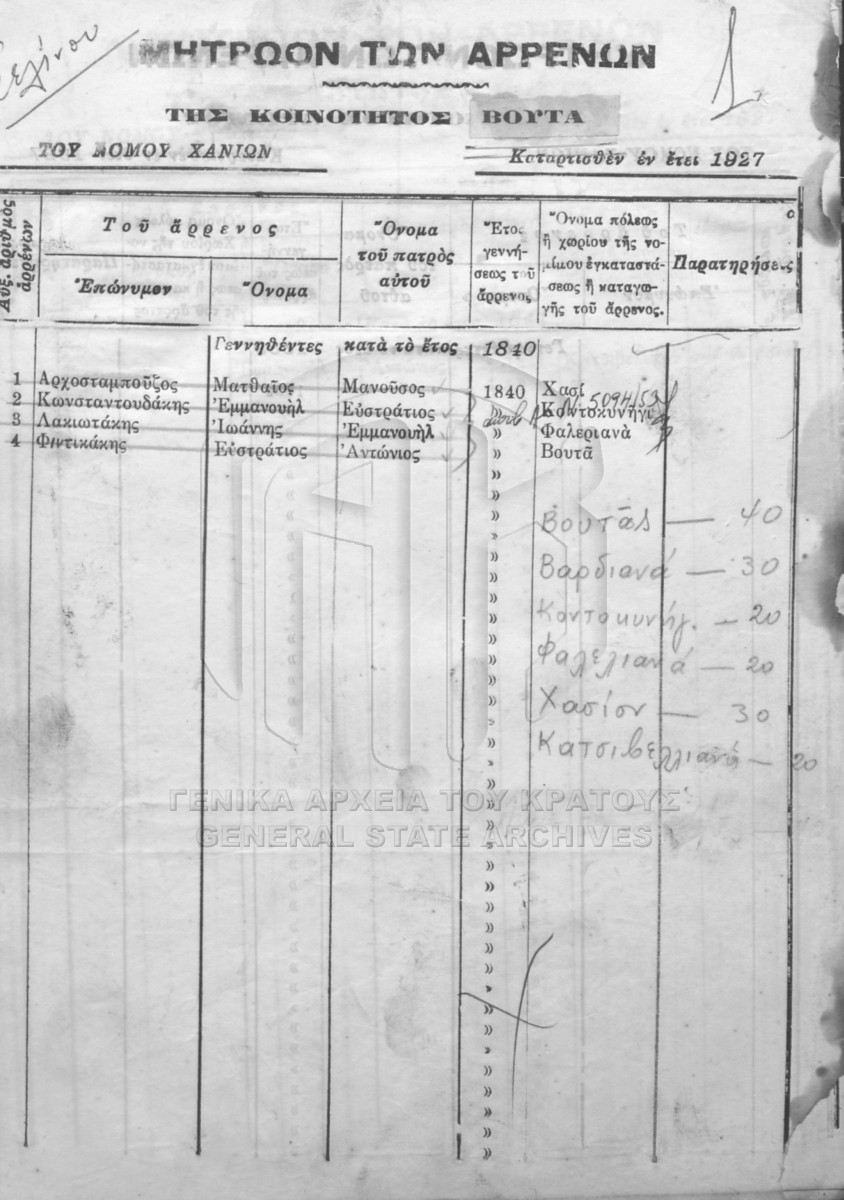 Σελίνου
1
ΜΗΤΡΩΟΝ ΤΩΝ ΑΡΡΕΝΩΝ
ΤΗΣ ΚΟΙΝΟΤΗΤΟΣ ΒΟΥΤΑ
ΤΟΥ ΝΟΜΟΥ ΧΑΝΙΩΝ
Καταρτισθὲν ἐν ἔτει 1927
Αὔξ. ἀριθμὸς ἀρρένων
Τοῦ ἄρρενος
Ἐπώνυμον
Ὄνομα
Ὄνομα
τοῦ πατρὸς
αὐτοῦ
Ἔτος
γεννή-
σεως τοῦ
ἄρρενος
Ὄνομα πόλεως
ἢ χωρίου τῆς νο-
μίμου ἐγκαταστά-
σεως ἢ καταγω-
γῆς τοῦ ἄρρενος.
Παρατηρήσεις
Γεννηθέντες κατὰ τὸ ἔτος 1840
1 Ἀρχοσταμποῦζος Ματθαῖος Μανοῦσος 1840 Χασί
5094/53
2 Κωνσταντουδάκης Ἐμμανουὴλ Εὐστράτιος » Κοντοκυνήγι
3 Λακιωτάκης Ἰωάννης Ἐμμανουὴλ » Φαλεριανὰ
4 Φιντικάκης Εὐστράτιος Ἀντώνιος » Βουτᾶ
Βουτᾶς — 40
Βαρδιανά — 30
Κοντοκυνήγ. — 20
Φαλελιανά — 20
Χασίον — 30
Κατσιβελλιανά — 20
ΓΕΝΙΚΑ ΑΡΧΕΙΑ ΤΟΥ ΚΡΑΤΟΥΣ
GENERAL STATE ARCHIVES